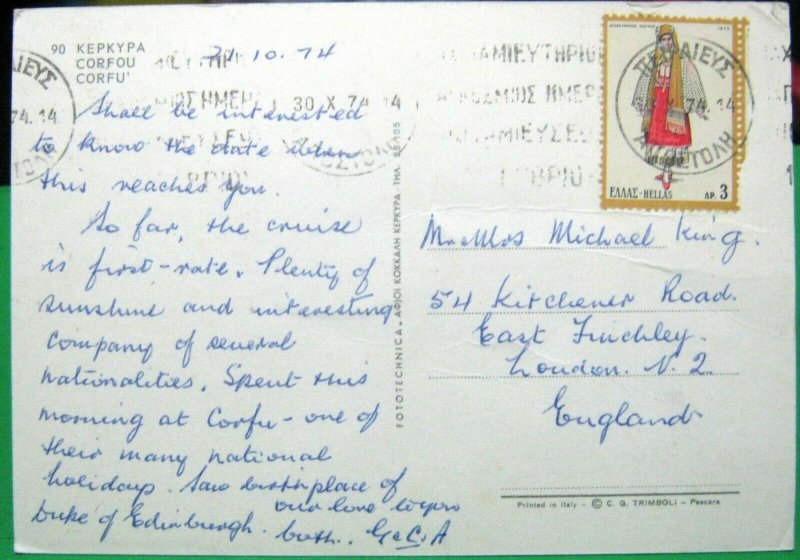 90 ΚΕΡΚΥΡΑ
CORFOU
CORFU'
10. 74
Shall be interested
to know the date when
this reaches you.
So far, the cruise
is first-rate. Plenty of
sunshine and interesting
company of several
nationalities. Spent this
morning at Corfu - one of
their many national
holidays. Saw birthplace of
Duke of Edinburgh. our love to you
both. G&A
FOTOTECHNICA. ΑΦΙΟΙ ΚΟΚΚΑΛΗ ΚΕΡΚΥΡΑ - ΤΗΛ.
30 X 74 -14
ΠΕΙΡΑΙΕΥΣ
74.14
ΕΛΛΑΣ-HELLAS ΔΡ. 3
Mr & Mrs Michael King.
54 Kitchener Road.
East Finchley.
London. N. 2
England
Printed in Italy - © C. G. TRIMBOLI - Pescara